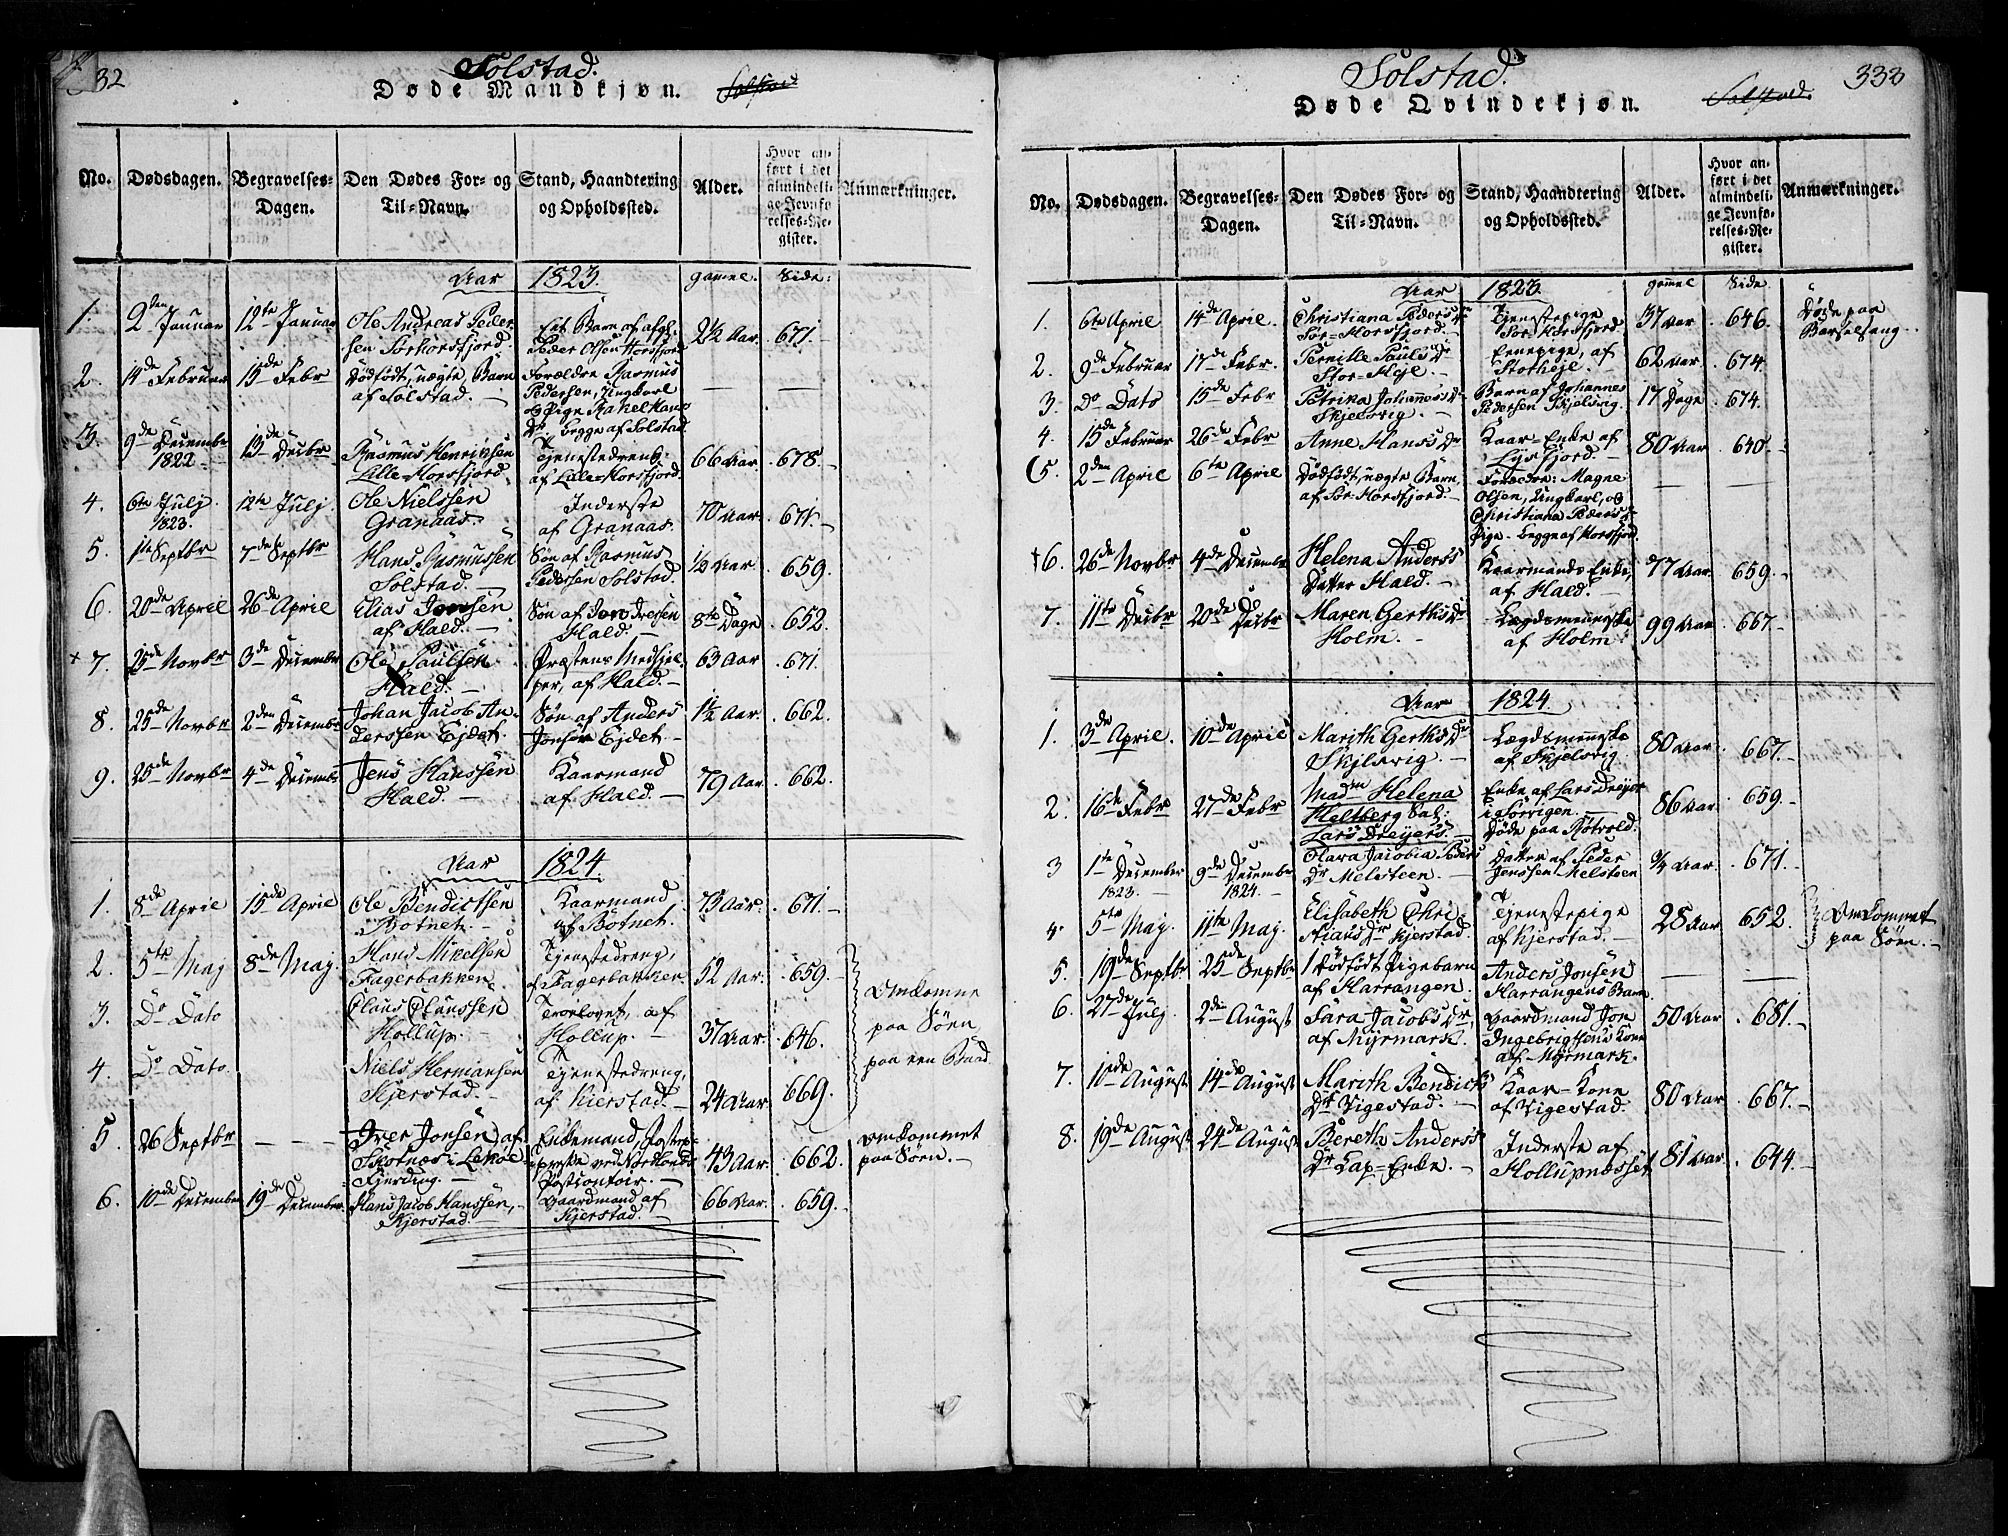 332
Solstad.
Døde Mandkjøn.
No.
Dødsdagen.
Begravelses-Dagen.
Den Dødes For- og Til-Navn.
Stand, Haandtering og Opholdssted.
Alder.
Hvor anført i det almindelige Jevnførelses-Register.
Anmærkninger.
Aar 1823.
gamel. Side:
1. 2den Januar 12te Januar Ole Andreas Pedersen Sørhorsfjord. Et Barn af afgl. Peder Olsen Horsfjord 2½ Aar 671.
2. 14de Februar 15de Febr Dødfødt, uægte Barn af Solstad. Forældre Rasmus Pedersen, Ungkarl og Pige Rakel Hans Dr. begge af Solstad — —
3. 9de Decembr 1822. 13de Decbr Rasmus Henriksen Lille-Horsfjord. Tjenestedreng af Lille-Horsfjord. 66 Aar. 678.
4. 6te Julj 1823. 12te Julj Ole Nielssen Granaas. Inderste af Granaas. 70 Aar 671.
5. 1te Septbr 7de Septbr Hans Rasmussen Solstad. Søn af Rasmus Pedersen Solstad. ½ Aar 659.
6. 20de April 26de April Elias Jonssen af Hald. Søn af Jon Hald. 8te Dage 652.
7. 25de Novbr 3de December Ole Paulsen Hald. Præstens Medhjelper, af Hald. 63 Aar 671.
8. 25de Novbr 2den December Johan Jacob Anderssen Ejdet. Søn af Anders Jonsen Ejdet 1½ Aar. 662.
9. 25de Novbr 4de Decembr Jens Hanssen Hald. Kaarmand af Hald. 79 Aar 662.
Aar 1824.
1. 8de April 15de April Ole Bendictsen Botnet. Kaarmand af Botnet. 75 Aar. 671.
2. 5te Maj 8de Maj. Hans Mikelsen Fagerbakken. Tjenestedreng, af Fagerbakken. 52 Aar. 659.
3. Do Dato Claus Claussen Hollup. af Hollup. 37 Aar. 646.
4. Do Dato. Niels Hermansen Kjerstad. Tjenestedreng, af Kierstad. 24 Aar 669.
Omkomne paa Søen, paa een Baad.
5. 26 Septbr — — Iver Jonsen af Skotnæs i Lekøe Fjerding. Enkemand, ved Nordlands Postcontoir. 43 Aar. 662. omkommet paa Søen.
6. 10de December 19de December. Hans Jacob Hanssen, Kjerstad. Gaardmand af Kjerstad. 66 Aar. 659.
Solstad.
333
Døde Qvindekjøn.
No.
Dødsdagen.
Begravelses-Dagen.
Den Dødes For- og Til-Navn.
Stand, Haandtering og Opholdssted.
Alder.
Hvor anført i det almindelige Jevnførelses-Register.
Anmærkninger.
Aar 1823.
gamel Side
1. 6te April 14de April. Christiana Peders Dr Sør-Horsfjord. Tjenestepige Sør-Horsfjord. 37 Aar 646. Døde paa Barselseng.
2. 9de Februar 17de Febr. Pernille Pauls Dr Stor-Heje. af Storheje. 62 Aar 674.
3. Do Dato 15de Febr Petrika Johannes Dr Skjelsvig. Barn af Johannes Pedersen Skjelsvig. 17 Dage 674.
4. 15de Februar 26de Febr Anne Hans Dr Kaar-Enke af Lysfjord. 80 Aar 640.
5. 2den April 6te April Dødfødt, uægte Barn, af Sør-Horsfjord. Forældre: Magne Olsen, Ungkarl, og Christiana Peders Dr Pige. Begge af Horsfjord. — —
6. 26de Novbr 4de Decembr Helena Anders Datter Hald. Kaarmands Enke, af Hald. 77 Aar. 659.
7. 11te Decbr 20de Decbr Maren Gerths Dr Holm. Lægdsmenneske af Holm. 99 Aar 667.
Aar 1824.
1. 3de April. 10de April Marith Gerths Dr Skjelsvig. Lægdsmenneske af Skjelsvig. 80 Aar 667.
2. 16de Febr 27de Febr Madm Helena Heltberg Sal: Lars Dreyers. Enke af Lars Dreyer i Torrigen. Døde paa 86 Aar 659.
3 1te December 1823. 9de December 1824. Clara Jacobia Peders Dr Melsteen. Datter af Peder Jenssen Melsteen ¾ Aar. 671.
4. 5te Maj. 11te Maj. Elisabeth Christians Dr Kjerstad. Tjenestepige af Kjerstad. 28 Aar 652. Omkommet paa Søen.
5. 19de Septbr 25de Septbr 1 Dødfødt Pigebarn af Harrangen. Anders Jonsen Harrangens Barn. — —
6. 27de Julj 2den August Sara Jacobs Dr, af Myrmark. Gaardmand Jon Ingebrigtsens Kone af Myrmark. 50 Aar 681.
7. 10de August 14de August Marith Bendicts Dr Vigestad. Kaar-Kone af Vigestad. 80 Aar 667.
8. 19de August 24de August Bereth Anders Dr Lap-Enke. Inderste af Hollupnæsset 81 Aar. 644.